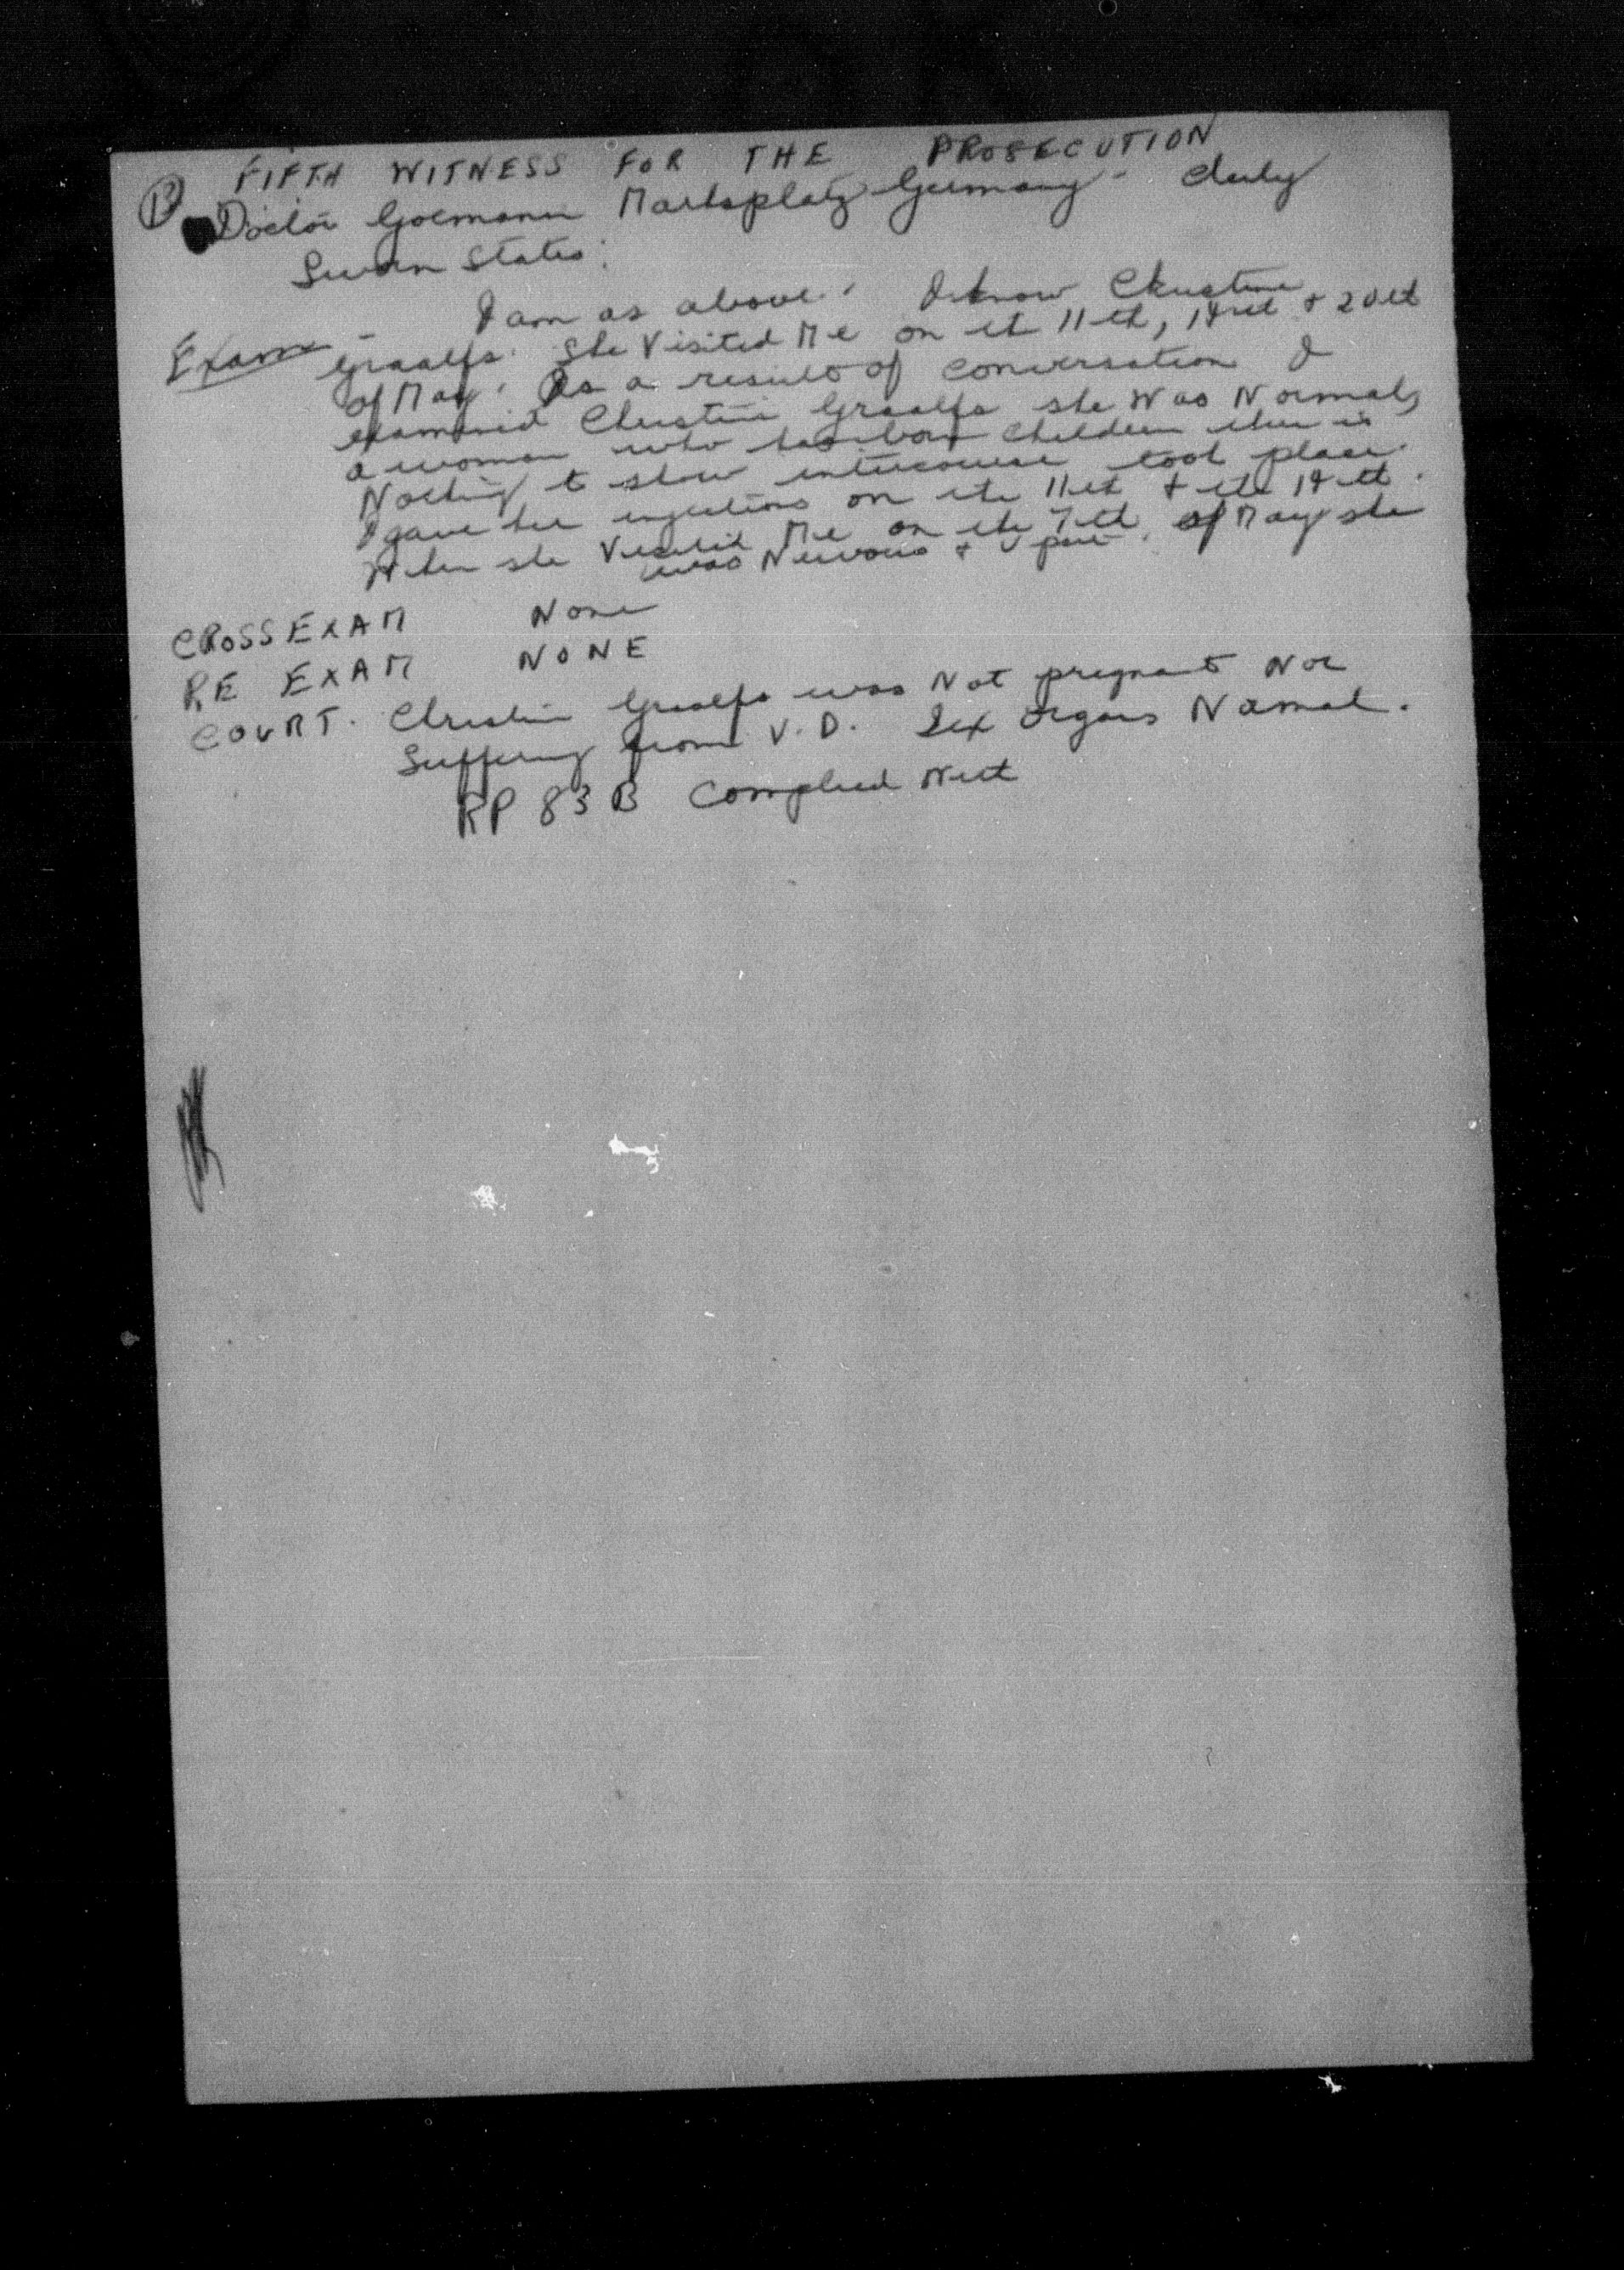 FIFTH WITNESS FOR THE PROSECUTION
13 Doctor Goemann Marktsplatz Germany - duly
Sworn States:
Exam - I am as above. I know Christine
Graalfs. She Visited Me on the 11th, 14th + 20th
of May. As a result of conversation I
examined Christine Graalfs she was Normal,
a woman who has born children there is
Nothing to show intercourse took place.
I gave her injections on the 11th + the 14th.
When she Visited Me on the 7th of May she
was Nervous + Upset.
CROSS EXAM None
RE EXAM NONE
COURT. Christine Graalfs was Not pregnant Nor
Suffering from V.D. Sex organs Normal.
RP 83 B Complied With